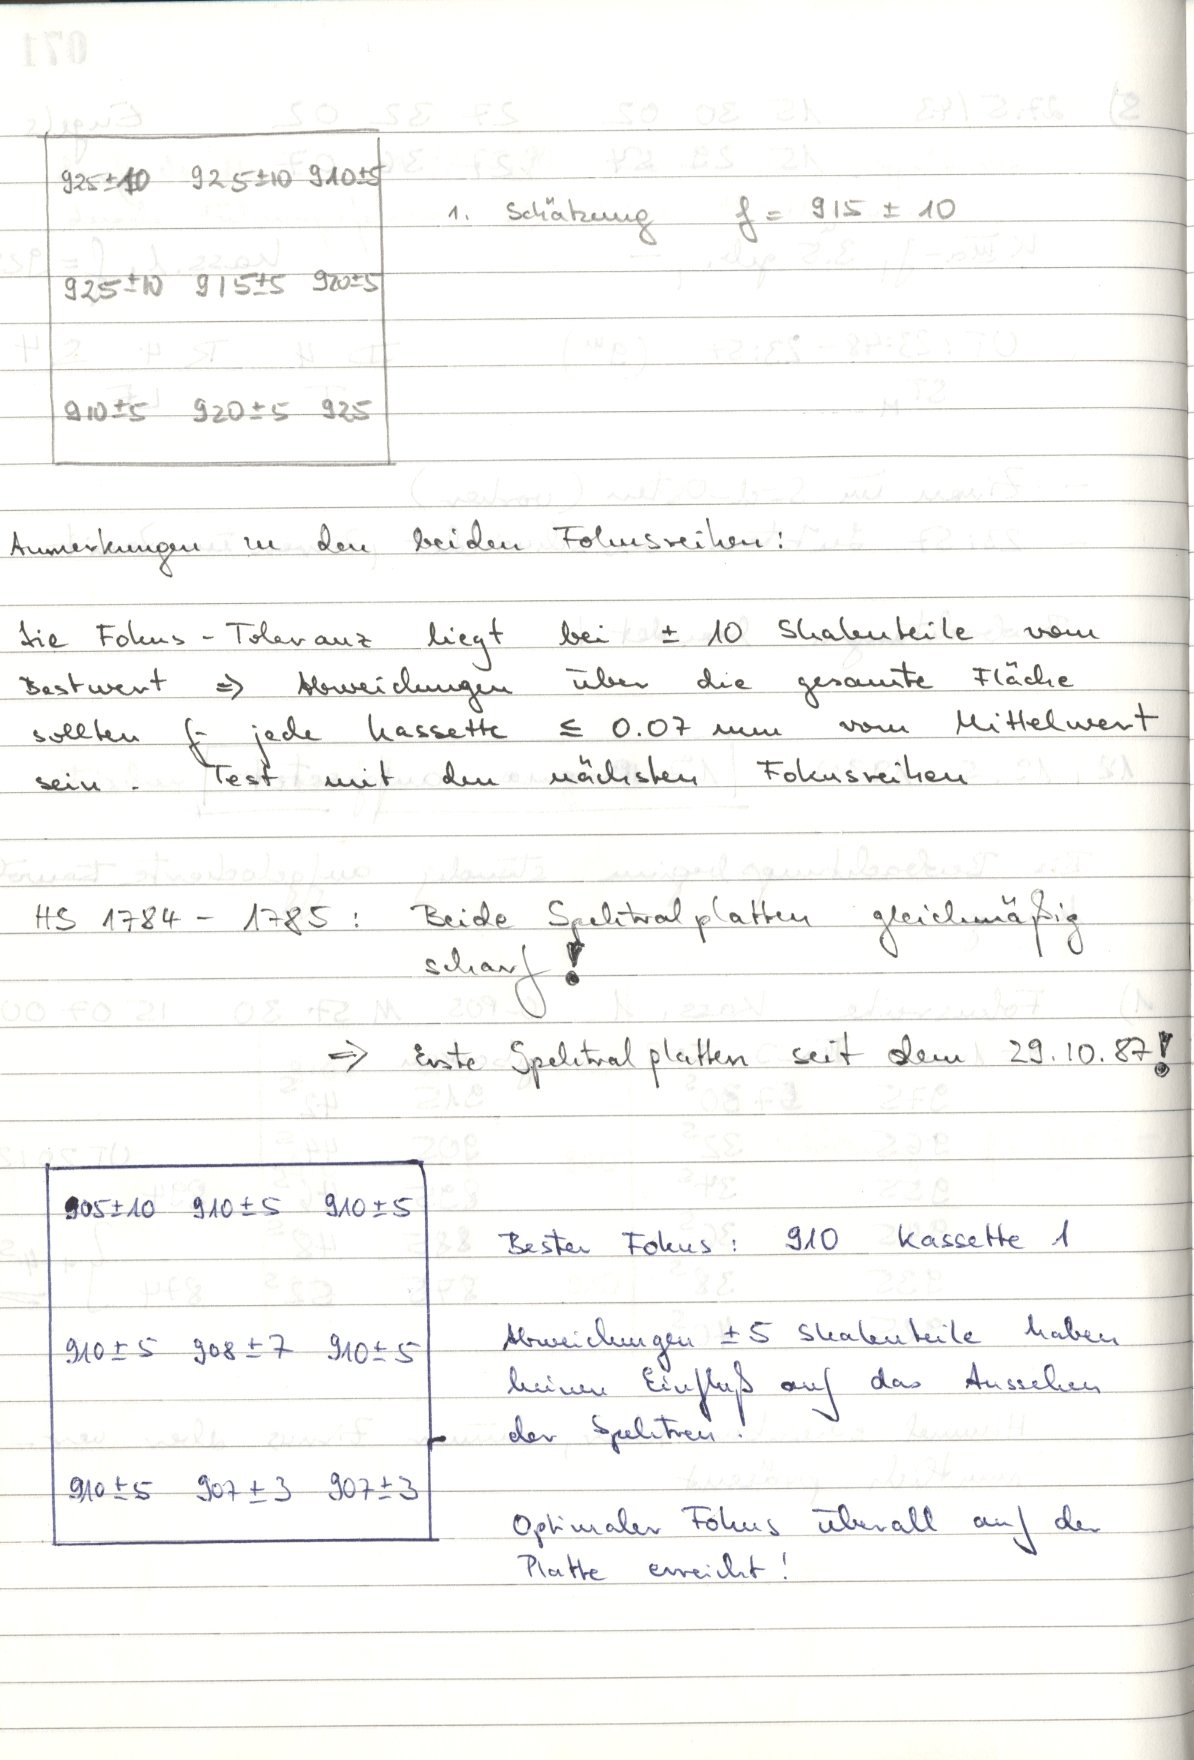 925±10 925±10 910±5
1. Schätzung f = 915 ± 10
925±10 915±5 920±5
910±5 920±5 925
Anmerkungen zu den beiden Fokusreihen:
Die Fokus-Toleranz liegt bei ± 10 Skalenteile vom
Bestwert => Abweichungen über die gesamte Fläche
sollten f- jede Kassette ≤ 0.07 mm vom Mittelwert
sein. Test mit den nächsten Fokusreihen
HS 1784 - 1785: Beide Spektralplatten gleichmäßig
scharf!
=> Erste Spektralplatten seit dem 29.10.87!
905±10 910±5 910±5
Bester Fokus: 910 Kassette 1
910±5 908±7 910±5
Abweichungen ±5 Skalenteile haben
keinen Einfluß auf das Aussehen
der Spektren!
910±5 907±3 907±3
Optimaler Fokus überall auf der
Platte erreicht!